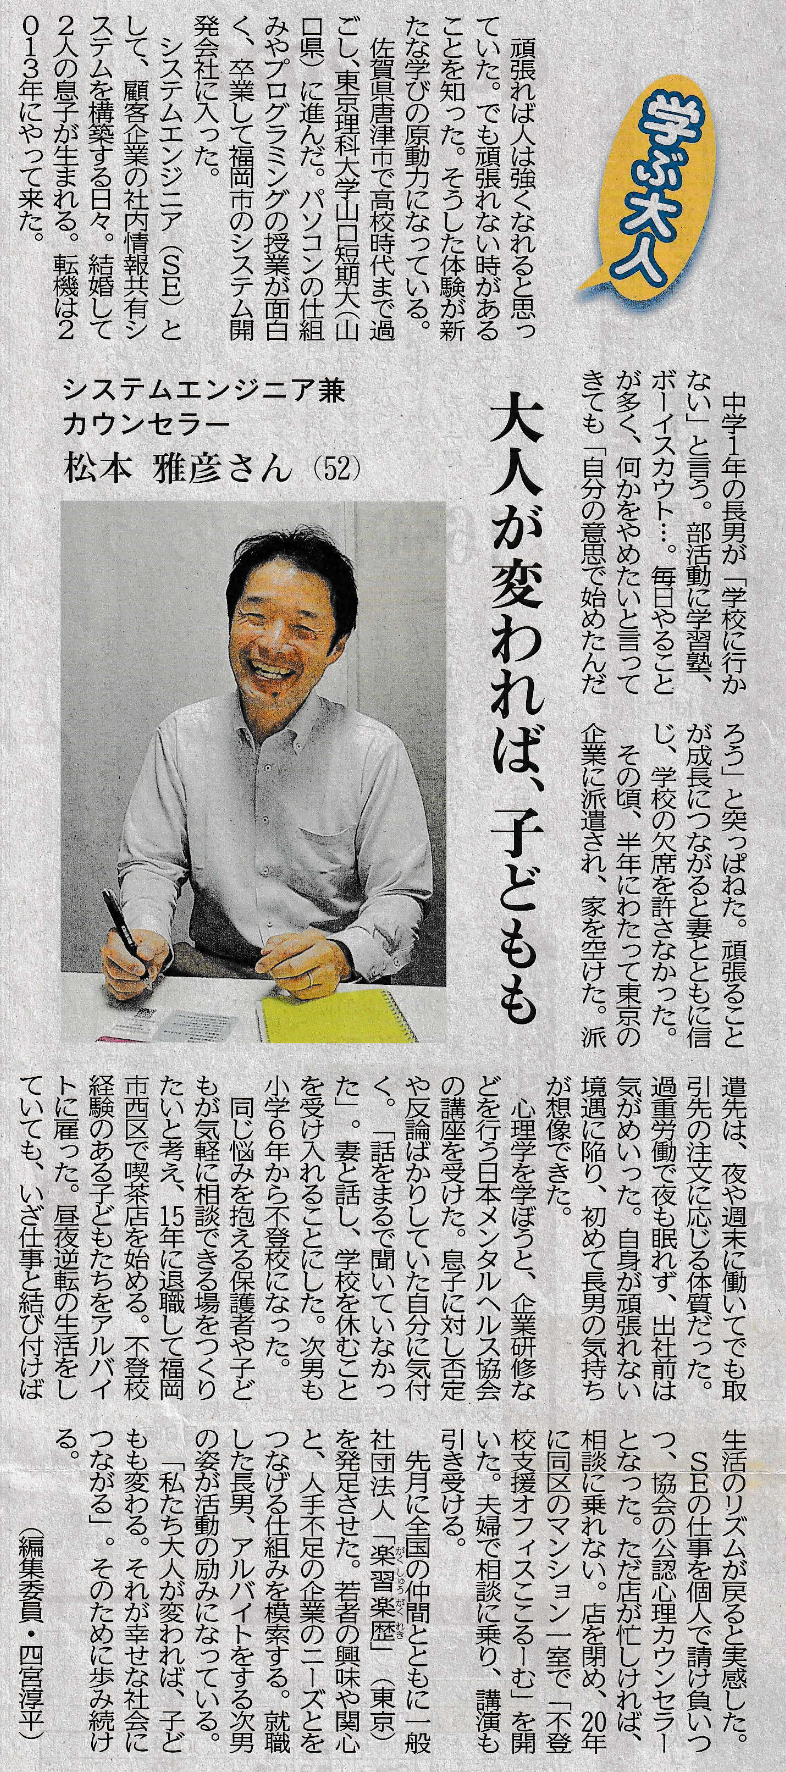 学ぶ大人
大人が変われば、子どもも
システムエンジニア兼
カウンセラー
松本 雅彦さん(52)
頑張れば人は強くなれると思っ
ていた。でも頑張れない時がある
ことを知った。そうした体験が新
たな学びの原動力になっている。
佐賀県唐津市で高校時代まで過
ごし、東京理科大学山口短期大(山
口県)に進んだ。パソコンの仕組
みやプログラミングの授業が面白
く、卒業して福岡市のシステム開
発会社に入った。
システムエンジニア(SE)と
して、顧客企業の社内情報共有シ
ステムを構築する日々。結婚して
2人の息子が生まれる。転機は2
013年にやって来た。
中学1年の長男が「学校に行か
ない」と言う。部活動に学習塾、
ボーイスカウト…。毎日やること
が多く、何かをやめたいと言って
きても「自分の意思で始めたんだ
ろう」と突っぱねた。頑張ること
が成長につながると妻とともに信
じ、学校の欠席を許さなかった。
その頃、半年にわたって東京の
企業に派遣され、家を空けた。派
遣先は、夜や週末に働いてでも取
引先の注文に応じる体質だった。
過重労働で夜も眠れず、出社前は
気がめいった。自身が頑張れない
境遇に陥り、初めて長男の気持ち
が想像できた。
心理学を学ぼうと、企業研修な
どを行う日本メンタルヘルス協会
の講座を受けた。息子に対し否定
や反論ばかりしていた自分に気付
く。「話をまるで聞いていなかっ
た」。妻と話し、学校を休むこと
を受け入れることにした。次男も
小学6年から不登校になった。
同じ悩みを抱える保護者や子ど
もが気軽に相談できる場をつくり
たいと考え、15年に退職して福岡
市西区で喫茶店を始める。不登校
経験のある子どもたちをアルバイ
トに雇った。昼夜逆転の生活をし
ていても、いざ仕事と結び付けば
生活のリズムが戻ると実感した。
SEの仕事を個人で請け負いつ
つ、協会の公認心理カウンセラー
となった。ただ店が忙しければ、
相談に乗れない。店を閉め、20年
に同区のマンション一室で「不登
校支援オフィスこころーむ」を開
いた。夫婦で相談に乗り、講演も
引き受ける。
先月に全国の仲間とともに一般
社団法人「楽習楽歴」(東京)
がくしゅうがくれき
を発足させた。若者の興味や関心
と、人手不足の企業のニーズとを
つなげる仕組みを模索する。就職
した長男、アルバイトをする次男
の姿が活動の励みになっている。
「私たち大人が変われば、子ど
もも変わる。それが幸せな社会に
つながる」。そのために歩み続け
る。
(編集委員・四宮淳平)